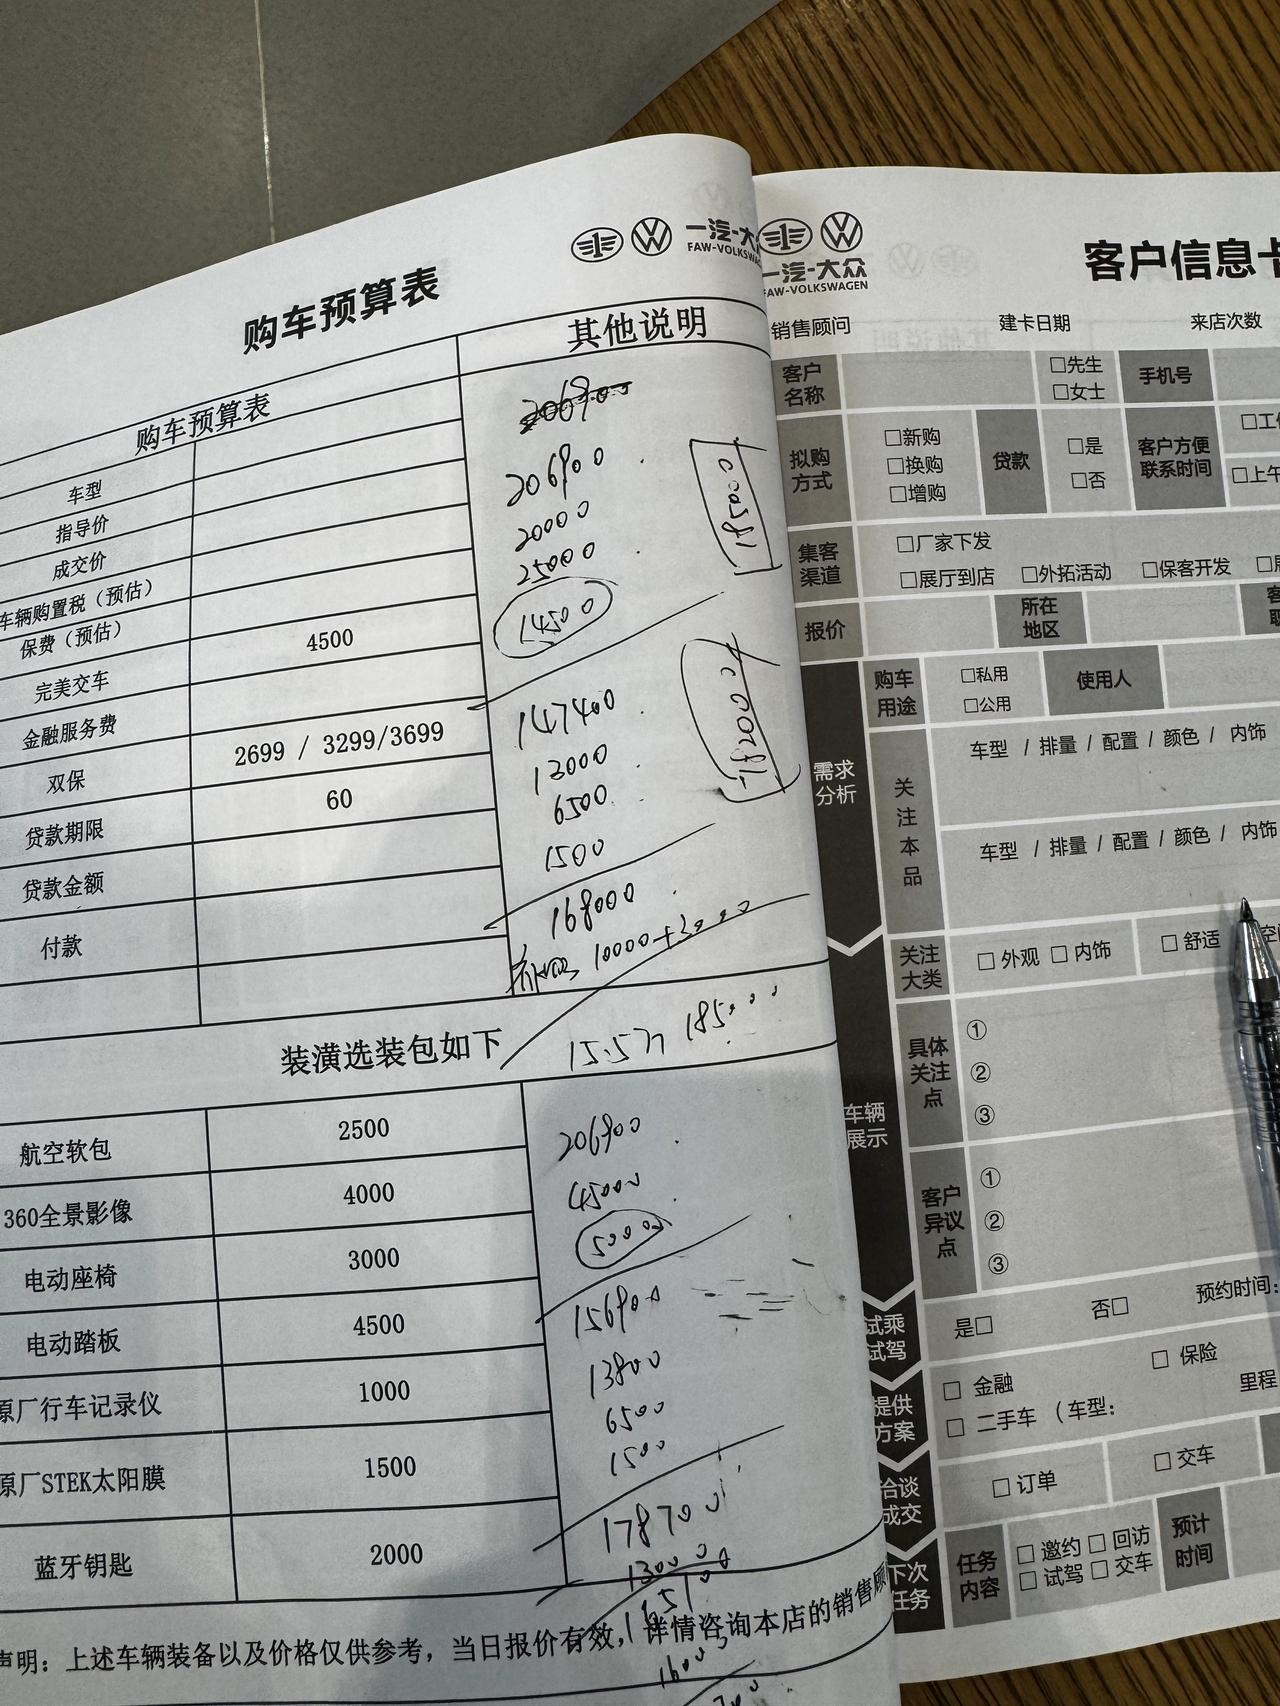 一汽-大众
FAW-VOLKSWAGEN
购车预算表
购车预算表
其他说明
车型
指导价
成交价
车辆购置税（预估）
保费（预估）
完美交车
4500
金融服务费
双保
2699 / 3299/3699
贷款期限
60
贷款金额
付款
206900
206900
20000
25000
14500
185000
147400
13000
6500
1500
168000
10000+3000
15.5万 185000
装潢选装包如下
航空软包
2500
360全景影像
4000
电动座椅
3000
电动踏板
4500
原厂行车记录仪
1000
原厂STEK太阳膜
1500
蓝牙钥匙
2000
206900
45000
5000
156900
13800
6500
1500
178700
13000
声明：上述车辆装备以及价格仅供参考，当日报价有效，详情咨询本店的销售顾
一汽-大众
FAW-VOLKSWAGEN
客户信息卡
销售顾问
建卡日期
来店次数
客户名称
□先生
□女士
手机号
拟购方式
□新购
□换购
□增购
贷款
□是
□否
客户方便联系时间
□上午
集客渠道
□厂家下发
□展厅到店 □外拓活动 □保客开发
报价
所在地区
需求分析
购车用途
□私用
□公用
使用人
关注本品
车型 / 排量 / 配置 / 颜色 / 内饰
车型 / 排量 / 配置 / 颜色 / 内饰
关注大类
□ 外观 □ 内饰
□ 舒适
车辆展示
具体关注点
①
②
③
客户异议点
①
②
③
试乘试驾
是□
否□
预约时间：
提供方案
□ 金融
□ 保险
□ 二手车 （车型：
里程
洽谈成交
□ 订单
□ 交车
下次任务
任务内容
□ 邀约 □ 回访
□ 试驾 □ 交车
预计时间